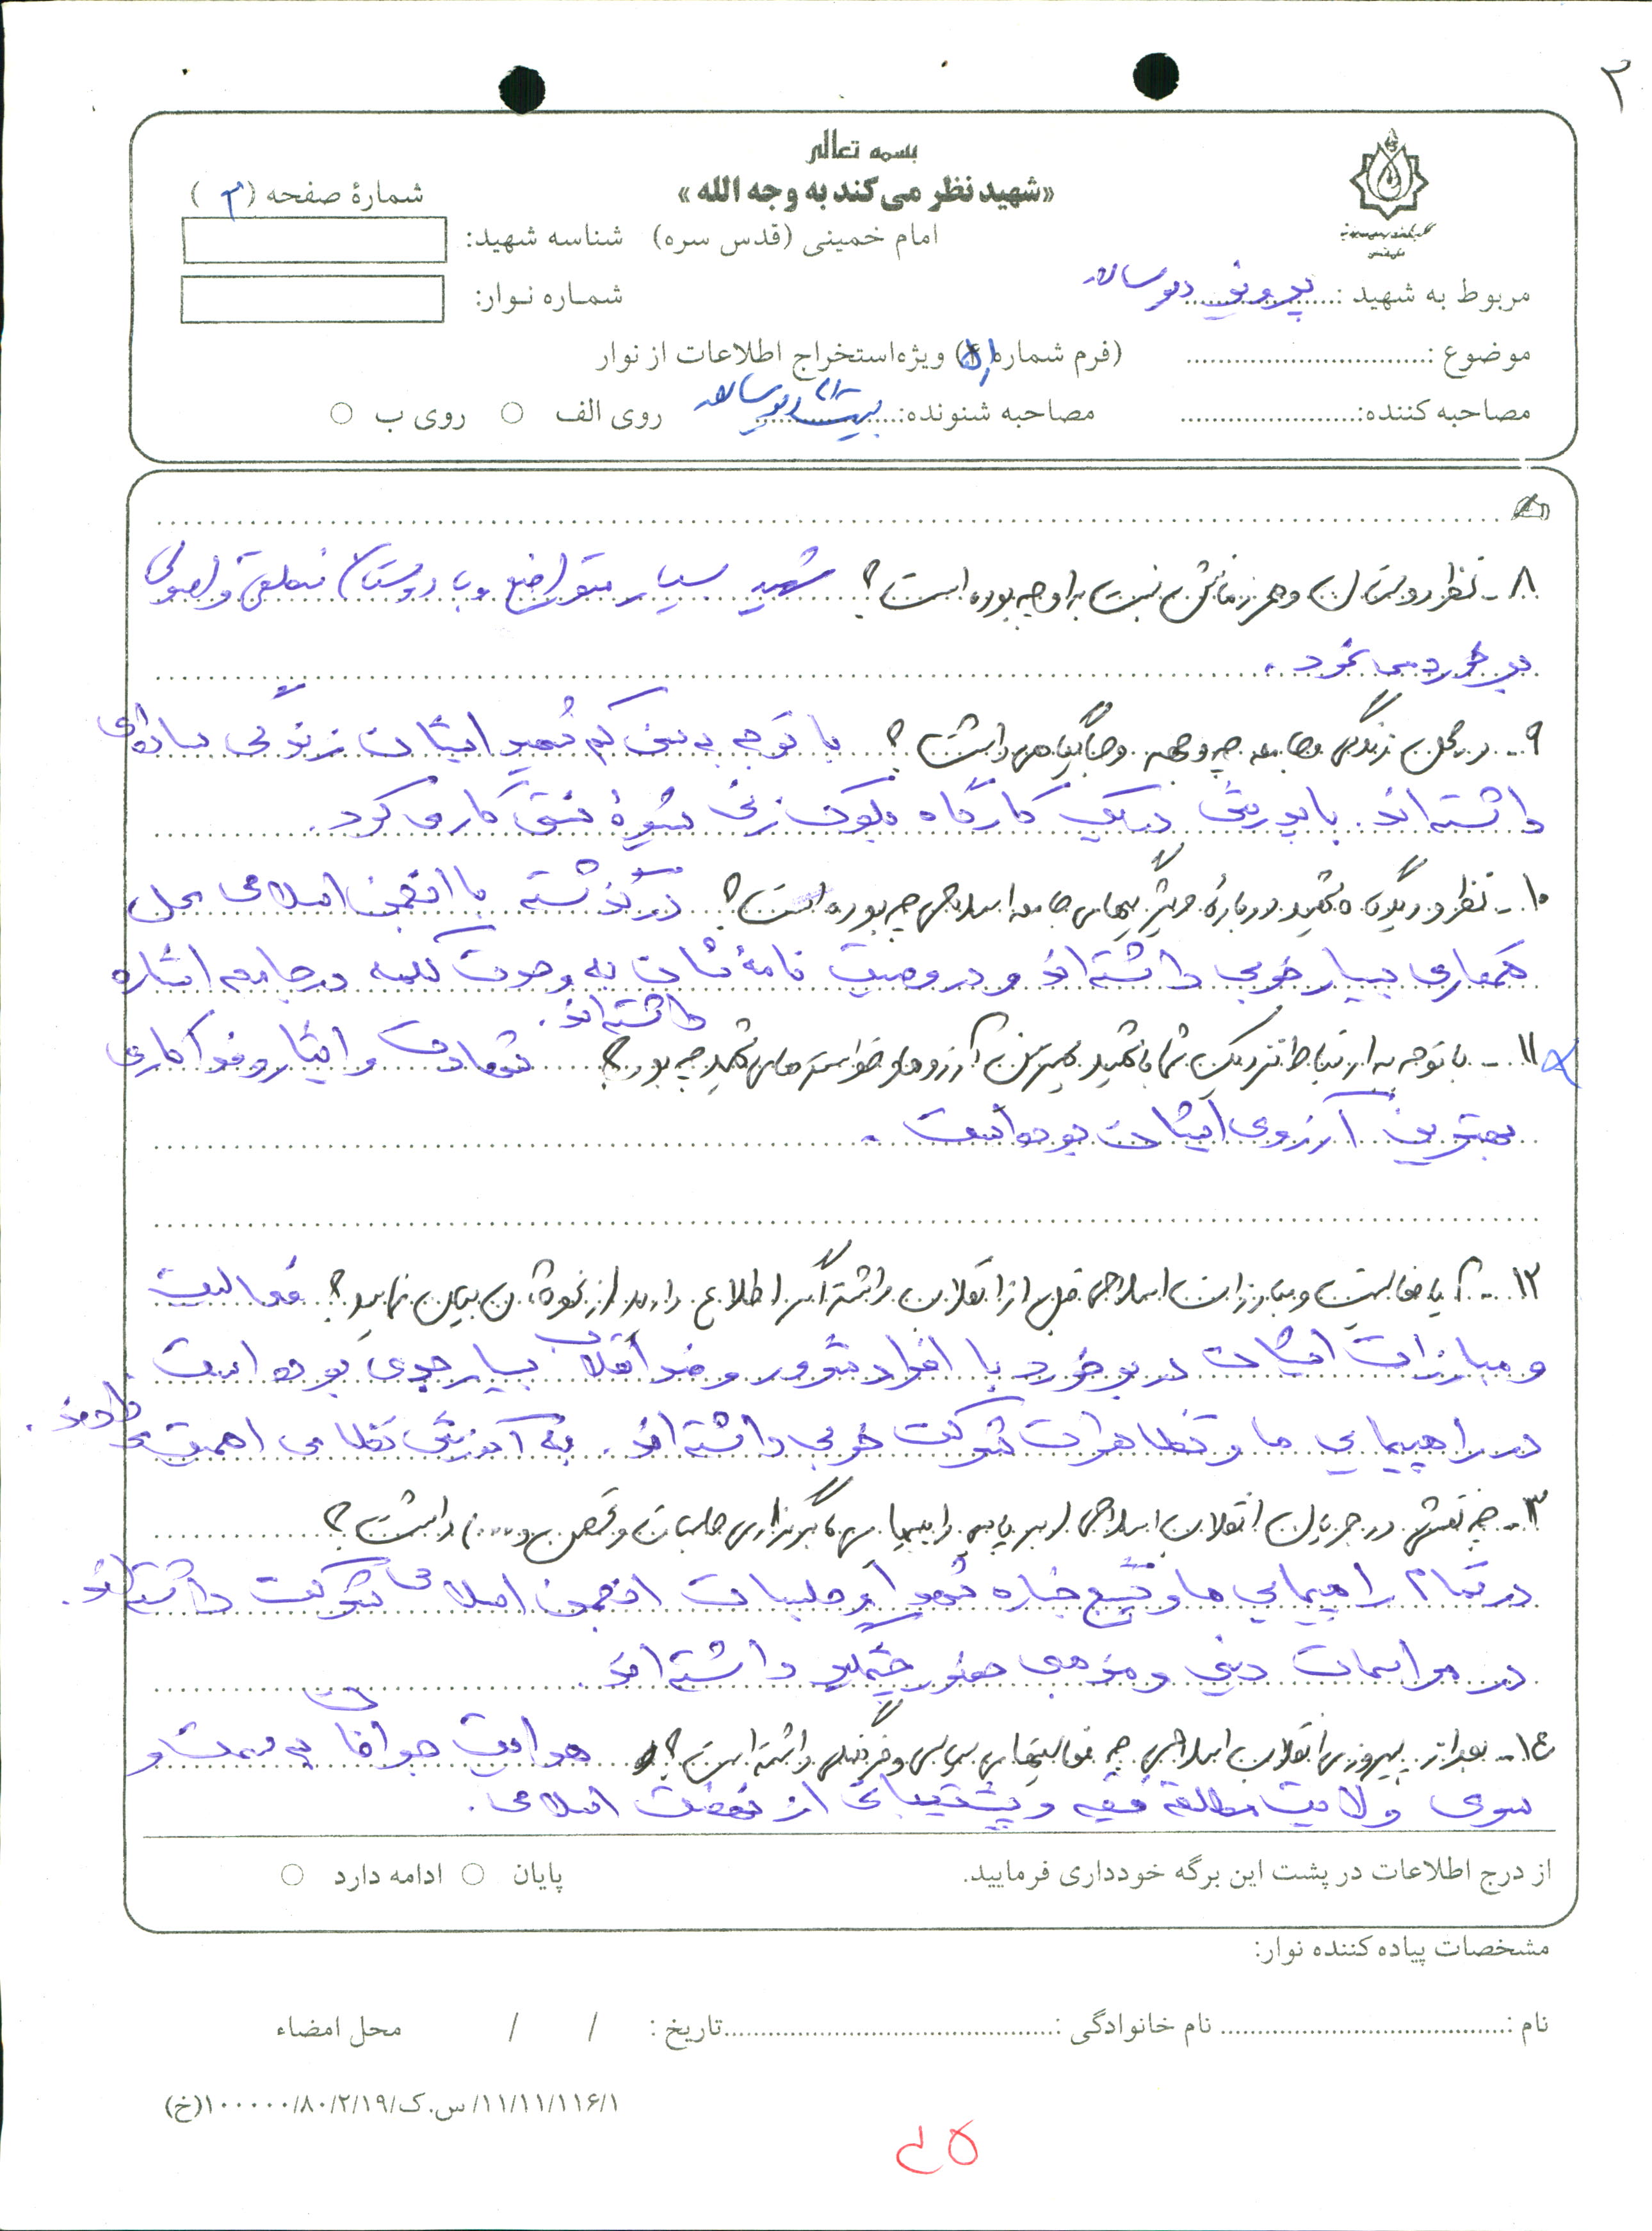 ۲
بسمه تعالی
«شهید نظر می‌کند به وجه الله»
شمارۀ صفحه (۲)
امام خمینی (قدس سره)
شناسه شهید:
مربوط به شهید : پرویز
شمـاره نـوار:
موضوع :
(فرم شماره ) ویژه‌استخراج اطلاعات از نوار
مصاحبه کننده:
مصاحبه شنونده:
روی الف
روی ب
۸- نظر دوستان و همرزمانش نسبت به او چه بوده است؟ شهید بسیار متواضع و با دوستان منطقی و اصولی
برخورد می نمود .
۹- در محل زندگی و جامعه چه وجهه و جایگاهی داشت؟ با توجه به سن کم شهید ایشان زندگی ساده‌ای
داشته اند. با پدرش در یک کارگاه بلوک زنی بشیوۀ سنتی کار می کرد.
۱۰- نظر و دیدگاه شهید دربارۀ ویژگیهای جامعه اسلامی چه بوده است؟ درگذشته با انجمن اسلامی محل
همکاری بسیار خوبی داشته اند و در وصیت نامۀ شان به وحدت کلمه در جامعه اشاره
داشته اند.
۱۱- با توجه به ارتباط نزدیک شما با شهید مهمترین آرزوها و خواسته های شهید چه بود؟ شهادت و ایثار و فداکاری
بهترین آرزوی ایشان بوده است .
۱۲- آیا فعالیت و مبارزات اسلامی قبل از انقلاب داشته اگر اطلاع دارید از نحوۀ آن بیان نمایید؟ فعالیت
و مبارزات ایشان در برخورد با افراد شرور و ضد انقلاب بسیار جدی بوده است .
در راهپیمایی ها و تظاهرات شرکت خوبی داشته اند. به آموزش نظامی اهمیت می دادند.
۱۳- چه نقشی در جریان انقلاب اسلامی (برپایی راهپیمایی ها برگزاری جلسات و تحصن و....) داشت؟
در تمام راهپیمایی ها و تشیع جنازه شهدا و جلسات انجمن اسلامی شرکت داشته اند.
در مراسمات دینی و مذهبی حضور چشمگیر داشته اند.
۱٤- بعد از پیروزی انقلاب اسلامی چه فعالیتهای سیاسی و فرهنگی داشته است؟ هدایت جوانان به سمت و
سوی ولایت مطلقه فقیه و پشتیبانی از نهضت اسلامی.
از درج اطلاعات در پشت این برگه خودداری فرمایید.
پایان
ادامه دارد
مشخصات پیاده کننده نوار:
نام :
نام خانوادگی :
تاریخ : / /
محل امضاء
۱۱/۱۱/۱۱۶/۱/س.ک/۱۰۰۰۰۰/۸۰/۲/۱۹(خ)